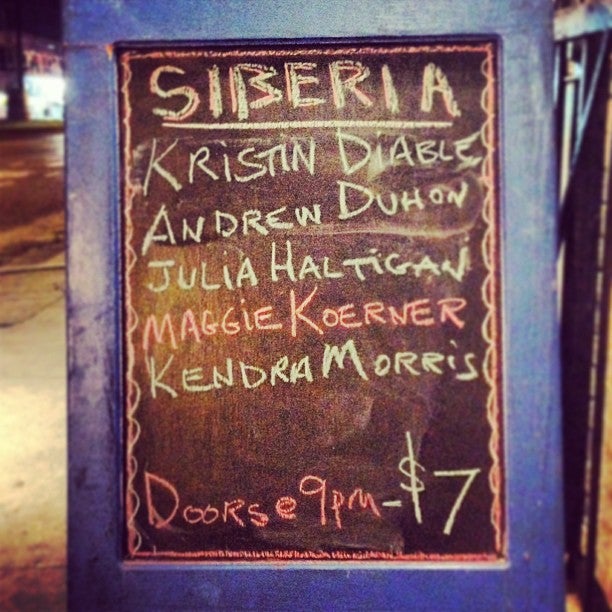 SIBERIA
KRISTIN DIABLE
ANDREW DUHON
JULIA HALTIGAN
MAGGIE KOERNER
KENDRA MORRIS
DOORS @ 9PM - $7